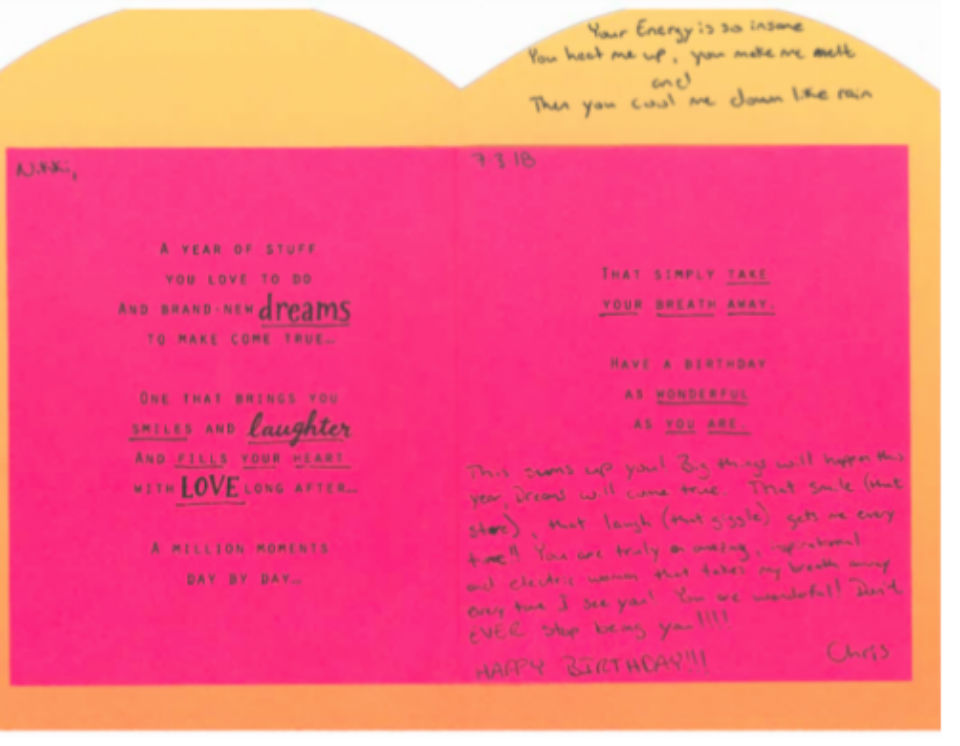 Your Energy is so insane
You heat me up, you make me melt
and
Then you cool me down like rain
Nikki,
A YEAR OF STUFF
YOU LOVE TO DO
AND BRAND-NEW dreams
TO MAKE COME TRUE...
ONE THAT BRINGS YOU
SMILES AND laughter
AND FILLS YOUR HEART
WITH LOVE LONG AFTER...
A MILLION MOMENTS
DAY BY DAY...
7 3 18
THAT SIMPLY TAKE
YOUR BREATH AWAY.
HAVE A BIRTHDAY
AS WONDERFUL
AS YOU ARE.
This sums up you! Big things will happen this
year, Dreams will come true. That smile (that
stare), that laugh (that giggle) gets me every
time!! You are truly an amazing, inspirational
and electric woman that takes my breath away
every time I see you! You are wonderful! Don't
EVER stop being you!!!!
HAPPY BIRTHDAY!!!
Chris